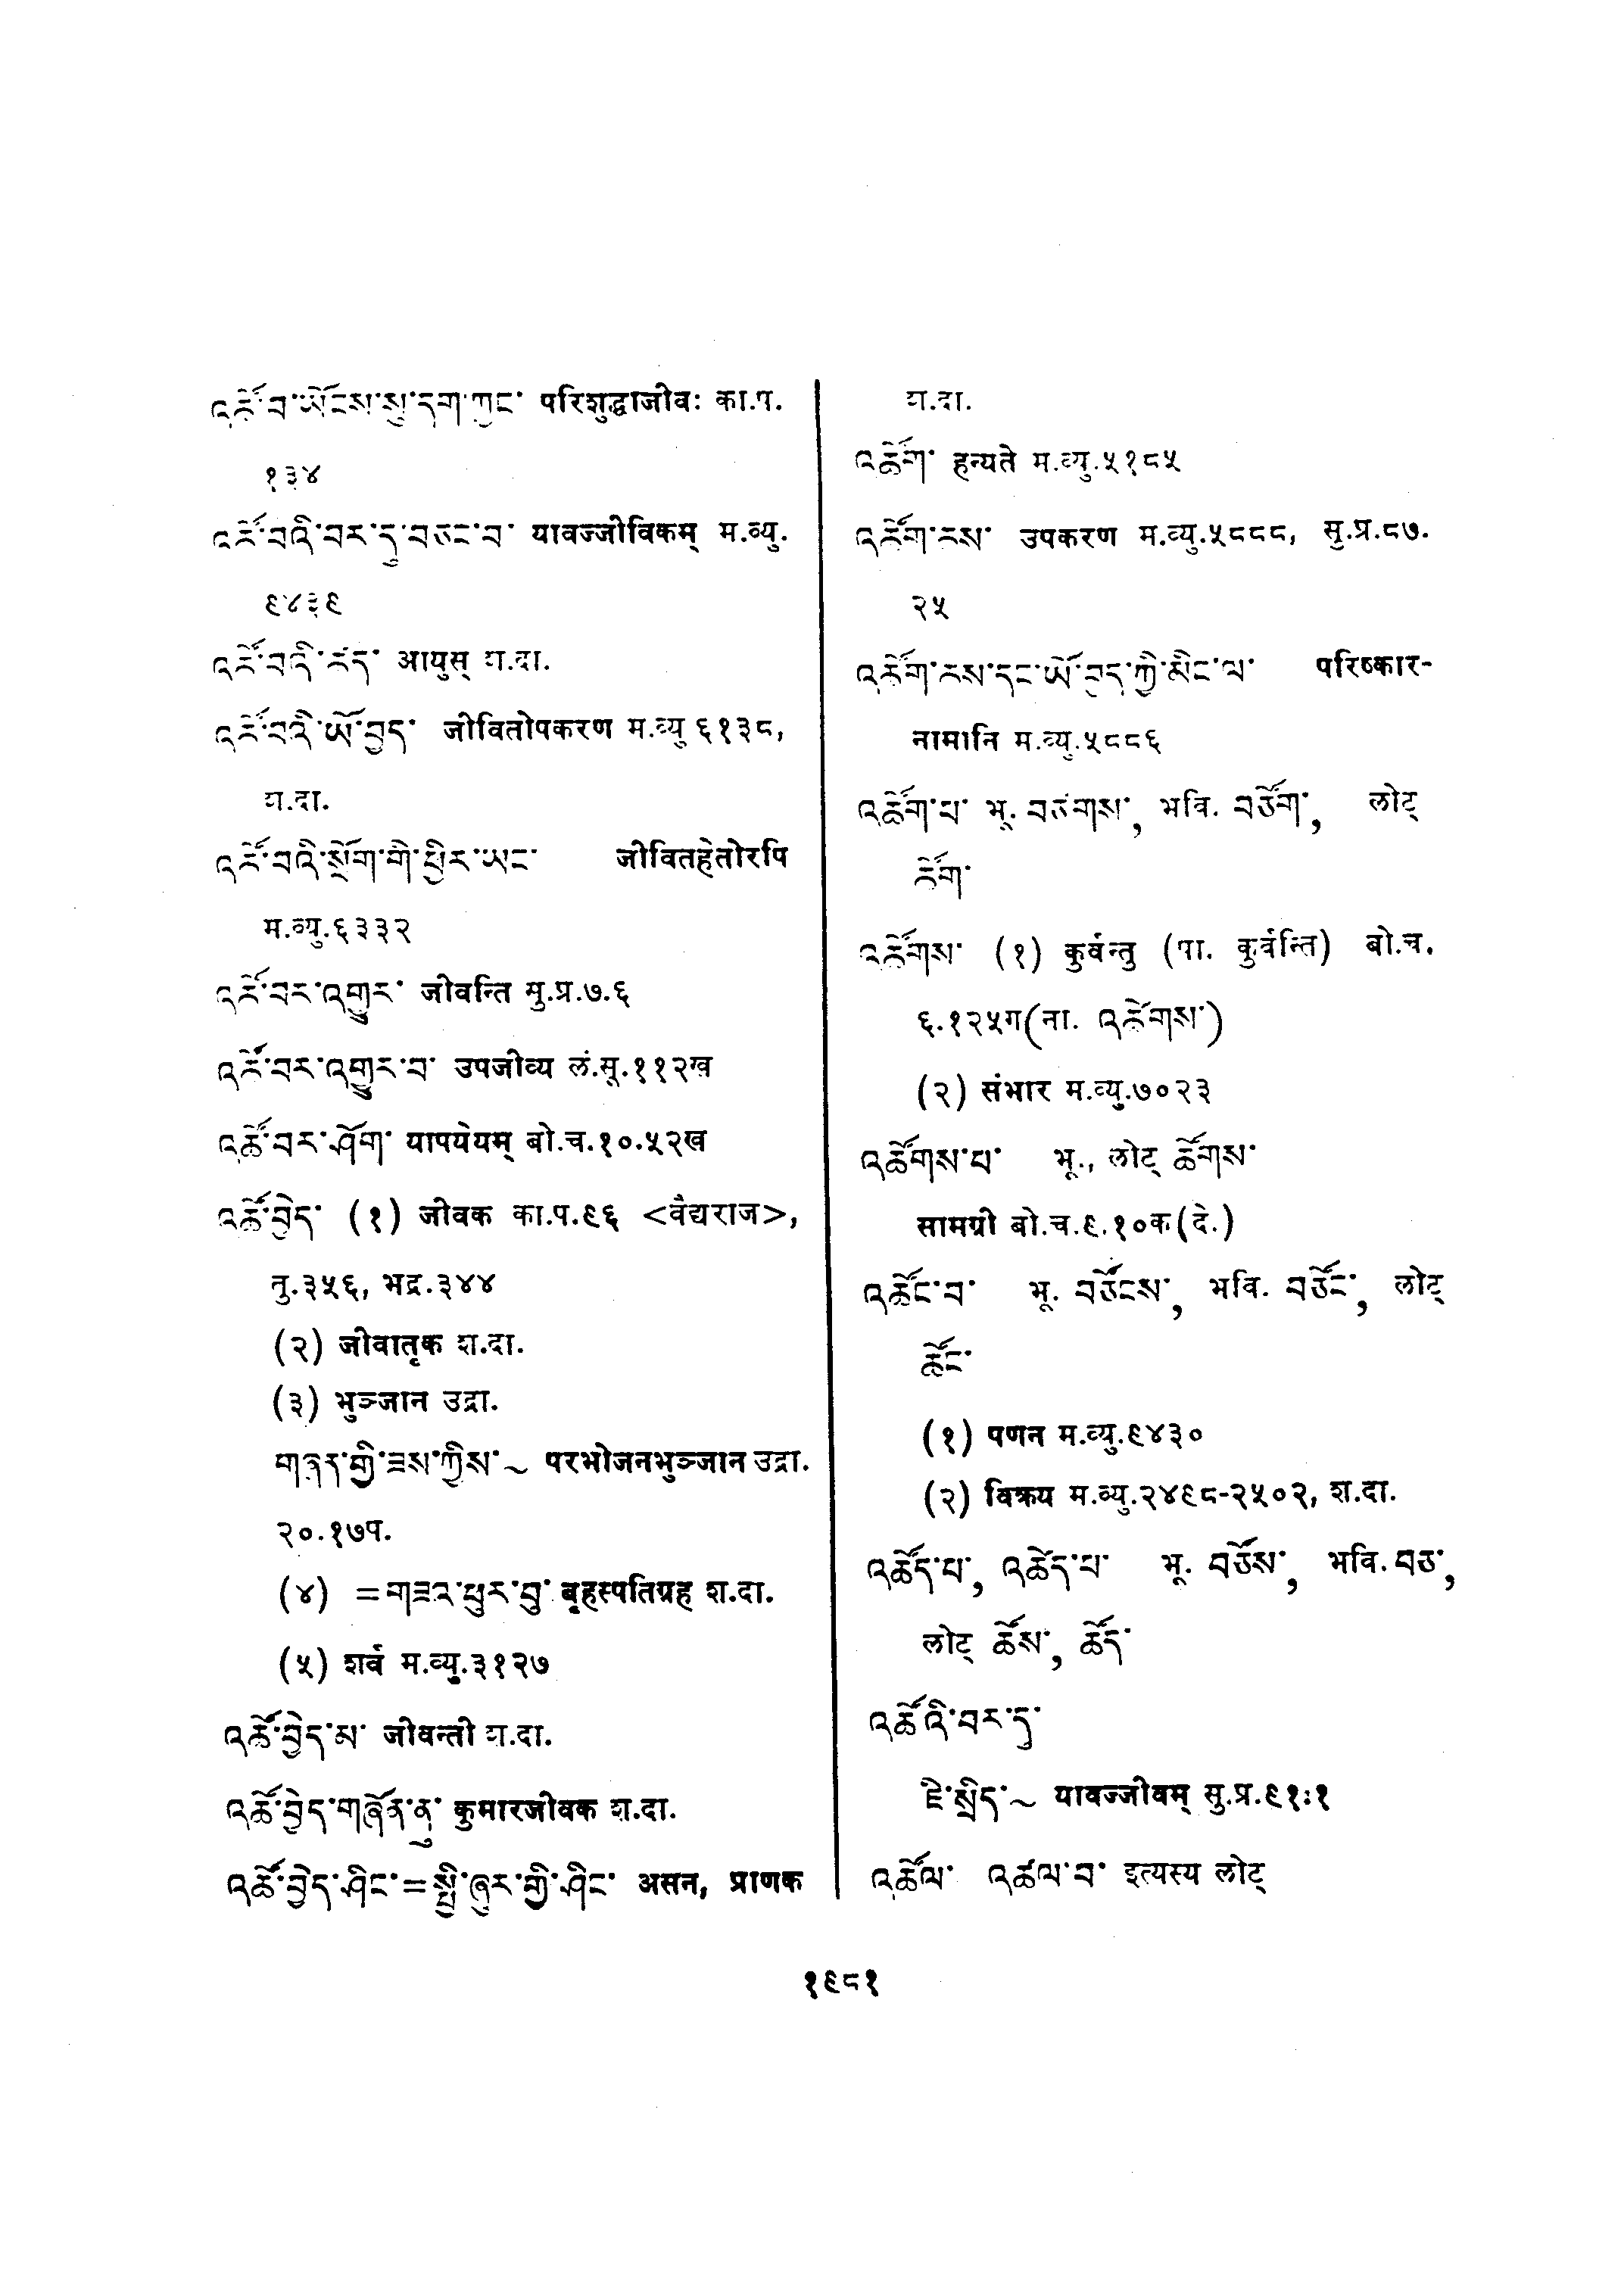 འཚོ་བ་ཡོངས་སུ་དག་ཀྱང་ परिशुद्धाजीवः का.प.
१३४
འཚོ་བའི་བར་དུ་བཅང་བ་ यावज्जीविकम् म.व्यु.
९४३९
འཚོ་བའི་ཚད་ आयुस् श.दा.
འཚོ་བའི་ཡོ་བྱད་ जीवितोपकरण म.व्यु ६१३८,
श.दा.
འཚོ་བའི་སྲོག་གི་ཕྱིར་ཡང་ जीवितहेतोरपि
म.व्यु.६३३२
འཚོ་བར་འགྱུར་ जीवन्ति सु.प्र.७.६
འཚོ་བར་འགྱུར་བ་ उपजीव्य लं.सू.११२ख
འཚོ་བར་ཤོག་ यापयेयम् बो.च.१०.५२ख
འཚོ་བྱེད་ (१) जीवक का.प.९६ <वैद्यराज>,
तु.३५६, भद्र.३४४
(२) जीवातृक श.दा.
(३) भुञ्जान उद्रा.
གཞན་གྱི་ཟས་ཀྱིས་~ परभोजनभुञ्जान उद्रा.
२०.१७प.
(४) =གཟའ་ཕུར་བུ་ बृहस्पतिग्रह श.दा.
(५) शर्व म.व्यु.३१२७
འཚོ་བྱེད་མ་ जीवन्ती श.दा.
འཚོ་བྱེད་གཞོན་ནུ་ कुमारजीवक श.दा.
འཚོ་བྱེད་ཤིང་=སྤྱི་ཞུར་གྱི་ཤིང་ असन, प्राणक
श.दा.
འཚོག་ हन्यते म.व्यु.५१८५
འཚོག་ཆས་ उपकरण म.व्यु.५८८८, सु.प्र.८७.
२५
འཚོག་ཆས་དང་ཡོ་བྱད་ཀྱི་མིང་ལ་ परिष्कार-
नामानि म.व्यु.५८८६
འཚོག་པ་ भू. བཙགས་, भवि. བཙོག་, लोट्
ཚོག་
འཚོགས་ (१) कुर्वन्तु (पा. कुर्वन्ति) बो.च.
६.१२५ग(ना. འཚོགས་)
(२) संभार म.व्यु.७०२३
འཚོགས་པ་ भू., लोट् ཚོགས་
सामग्री बो.च.९.१०क(दे.)
འཚོང་བ་ भू. བཙོངས་, भवि. བཙོང་, लोट्
ཚོང་
(१) पणन म.व्यु.९४३०
(२) विक्रय म.व्यु.२४९८-२५०२, श.दा.
འཚོད་པ་, འཚེད་པ་ भू. བཙོས་, भवि. བཙ་,
लोट् ཚོས་, ཚོད་
འཚོའི་བར་དུ་
ཇི་སྲིད་~ यावज्जीवम् सु.प्र.९१:१
འཚོལ་ འཚལ་བ་ इत्यस्य लोट्
१९८१